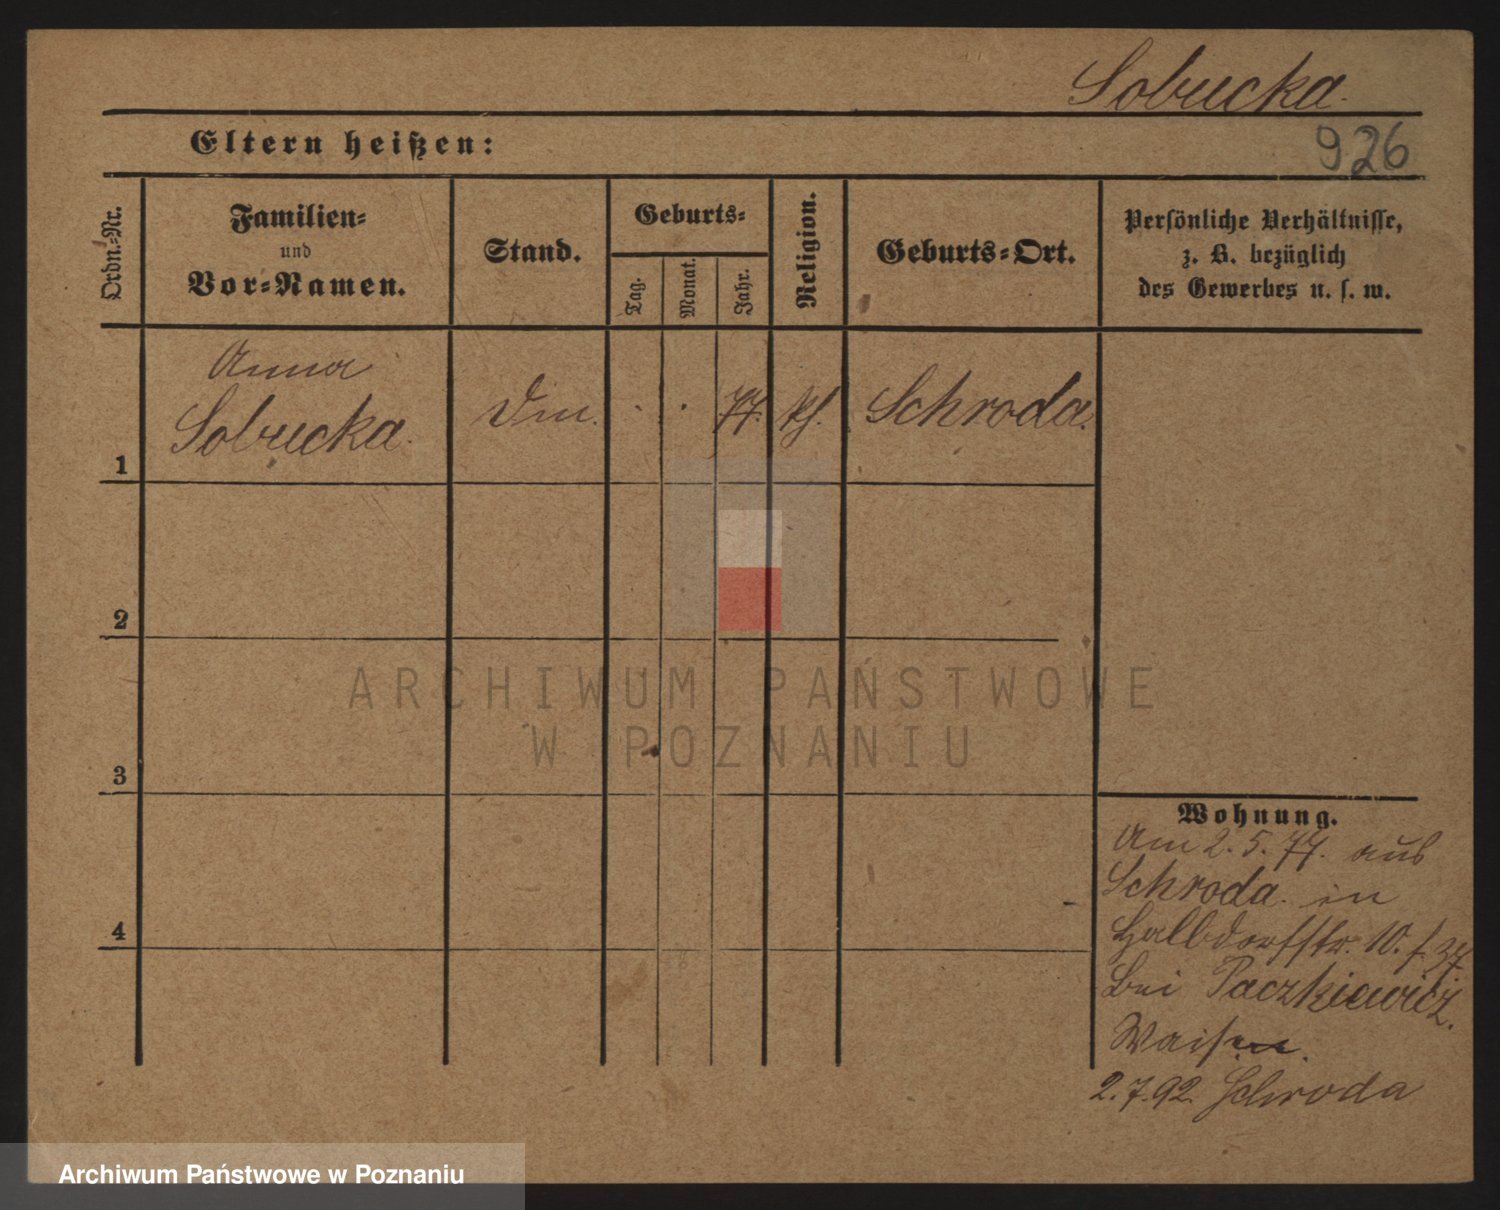 Sobucka.
Eltern heißen:
926
Ordn.-Nr.
Familien-
und
Vor-Namen.
Stand.
Geburts-
Tag.
Monat.
Jahr.
Religion.
Geburts-Ort.
Persönliche Verhältnisse,
z. B. bezüglich
des Gewerbes u. s. w.
1
Anna
Sobucka.
77.
Schroda.
2
3
4
Wohnung.
Am 2.5.77. aus
Schroda in
Halbdorfstr. 10.
bei Paczkiewicz.
Waisen.
2.7.92. Schroda
ARCHIWUM PAŃSTWOWE
W POZNANIU
Archiwum Państwowe w Poznaniu